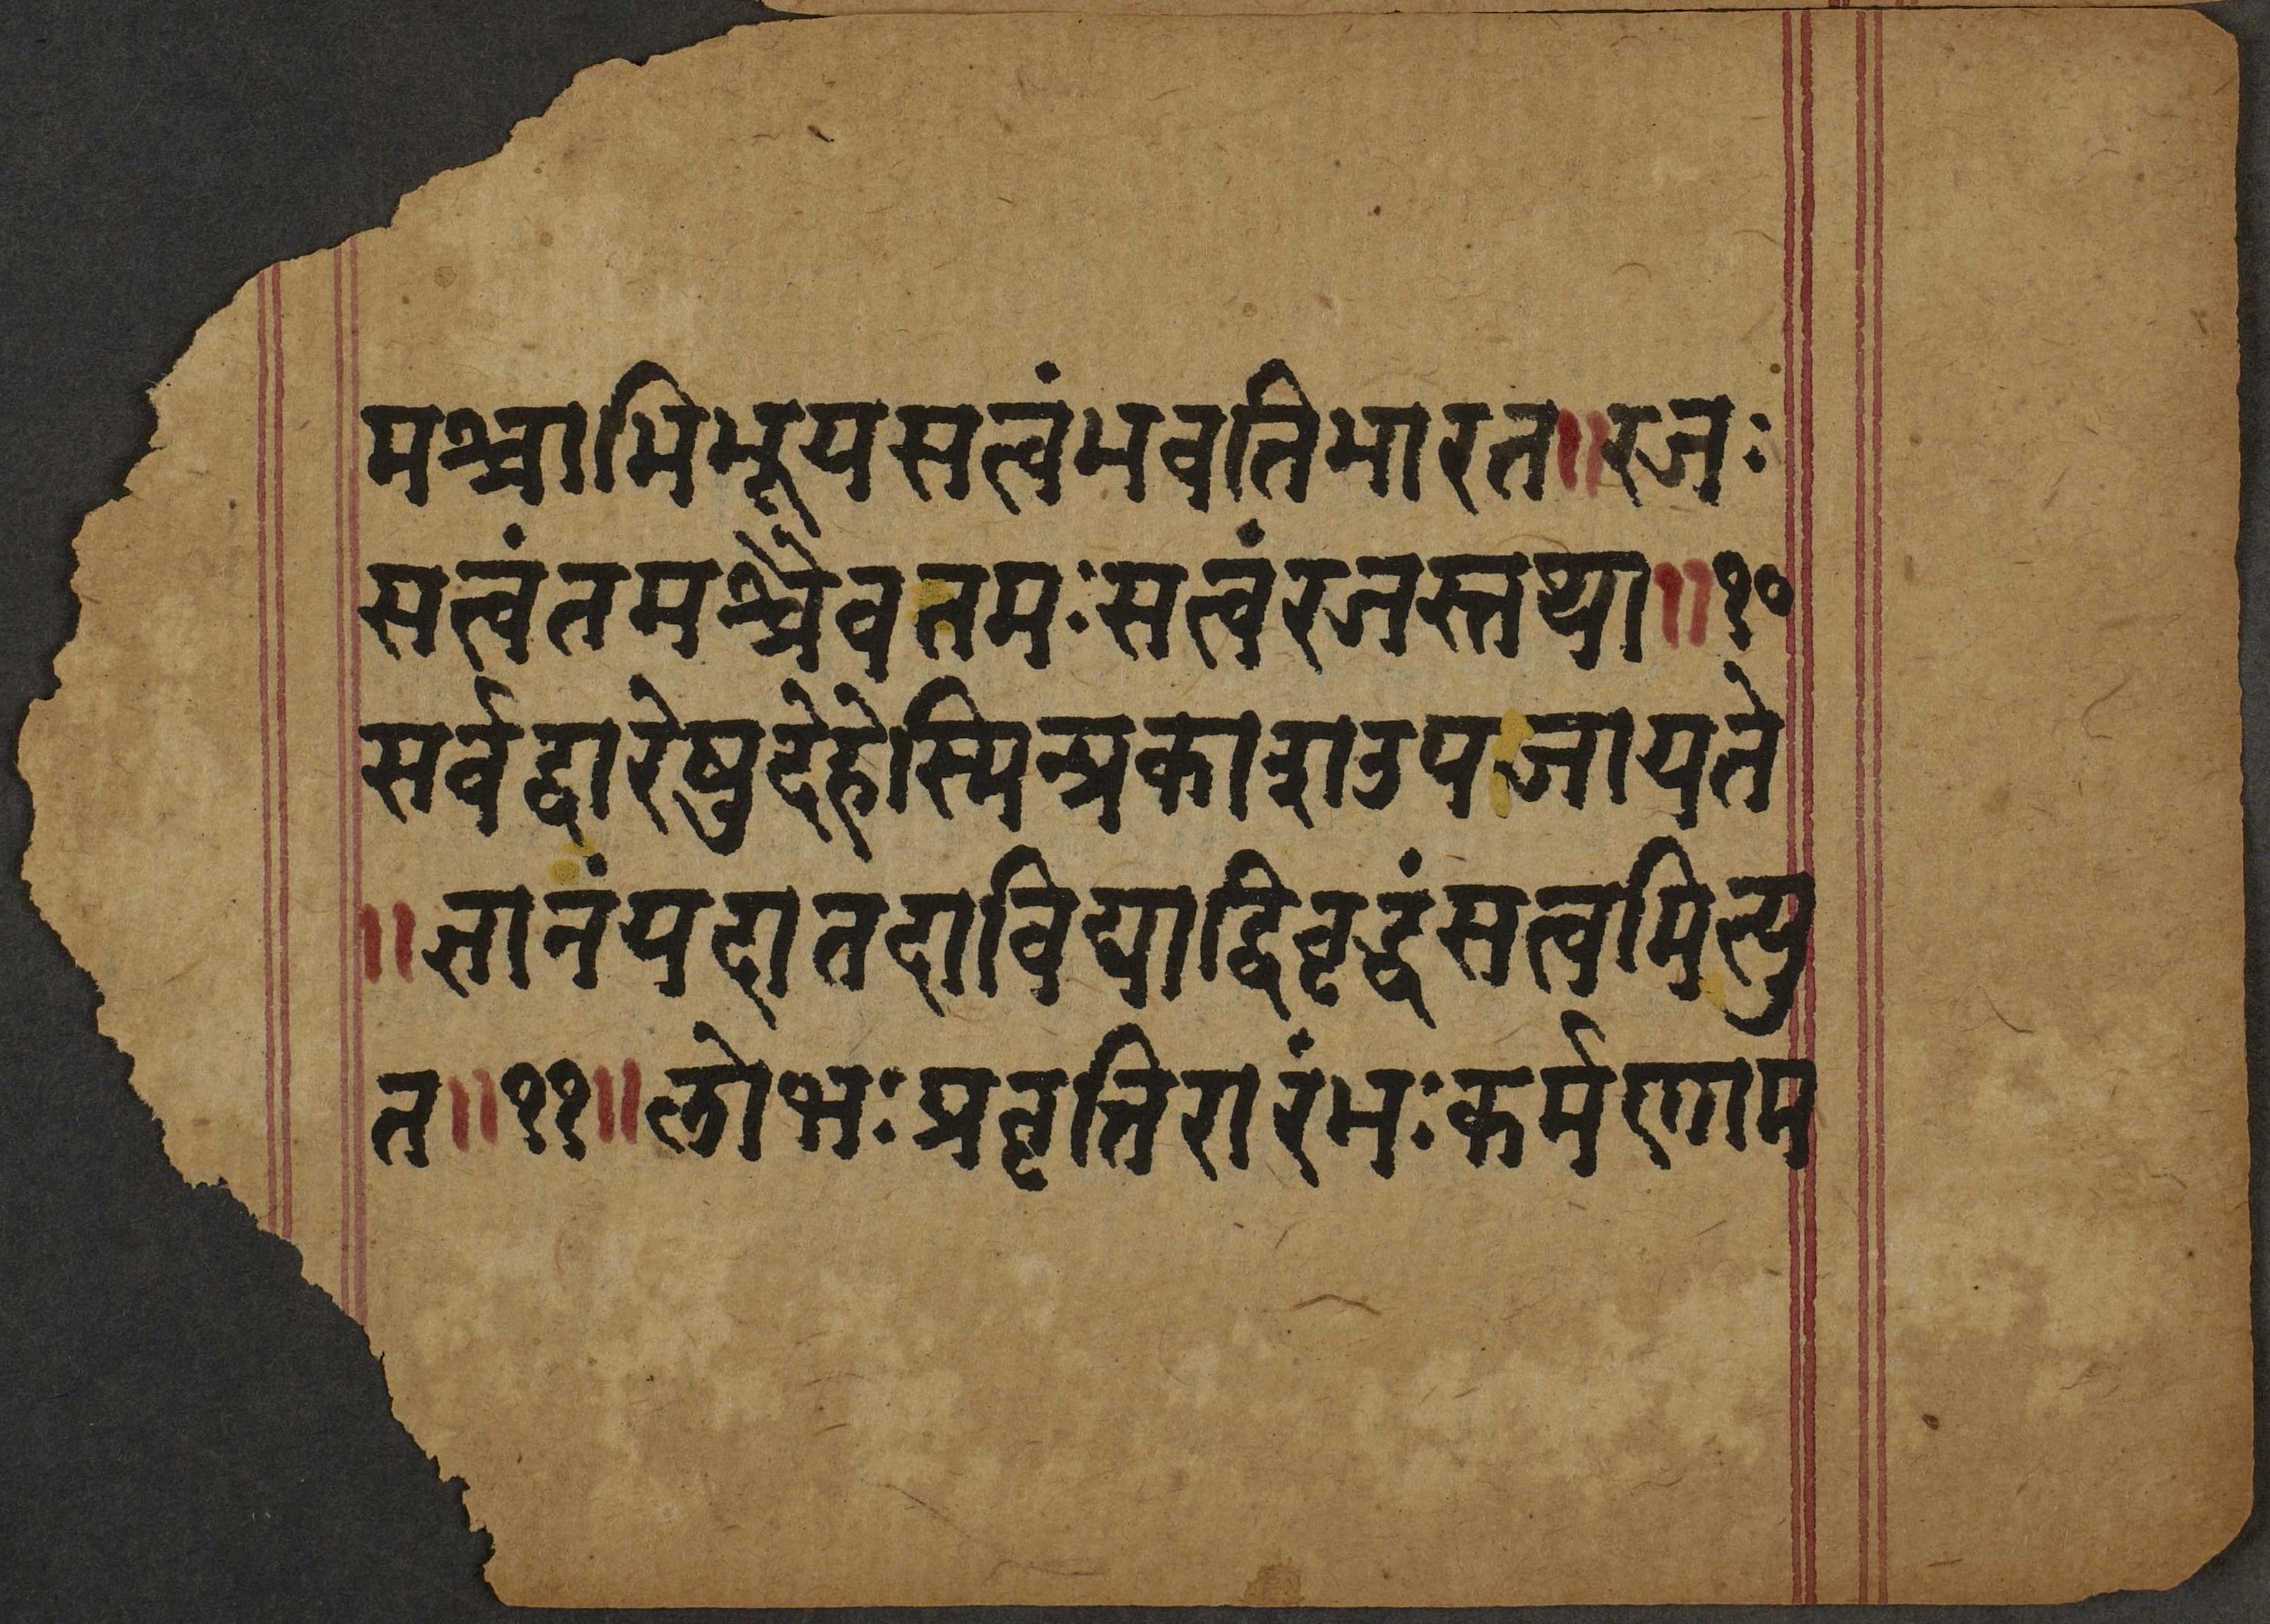 मश्चाभिभूयसत्वंभवतिभारत॥रजः
सत्वंतमश्चैवतमःसत्वंरजस्तथा॥१०
सर्वद्वारेषुदेहेस्मिन्प्रकाशउपजायते
॥ज्ञानंयदातदाविद्याद्विवृद्धंसत्वमित्यु
त॥११॥लोभःप्रवृत्तिरारंभःकर्मणाम